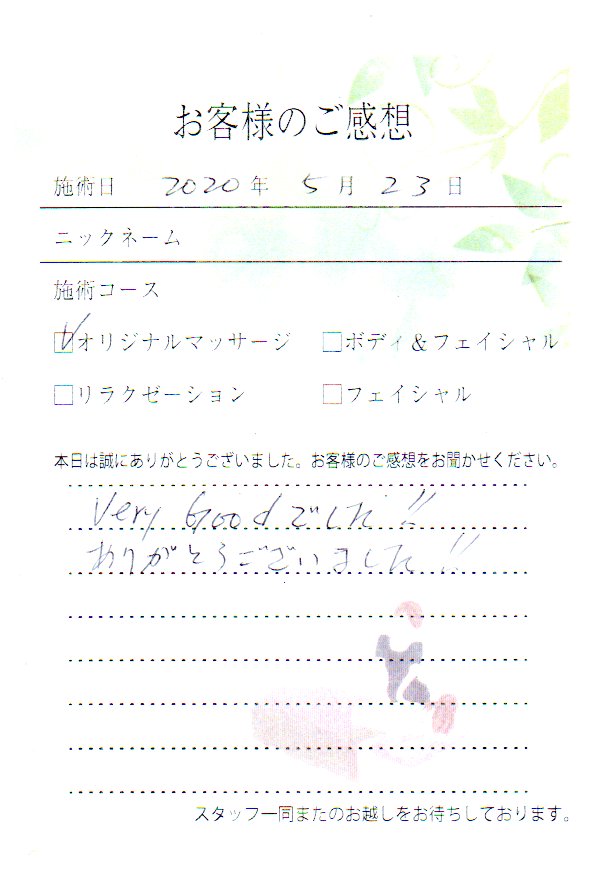 お客様のご感想
施術日 2020年 5月 23日
ニックネーム
施術コース
☑オリジナルマッサージ □ボディ&フェイシャル
□リラクゼーション □フェイシャル
本日は誠にありがとうございました。お客様のご感想をお聞かせください。
Very Goodでした!!
ありがとうございました!!
スタッフ一同またのお越しをお待ちしております。